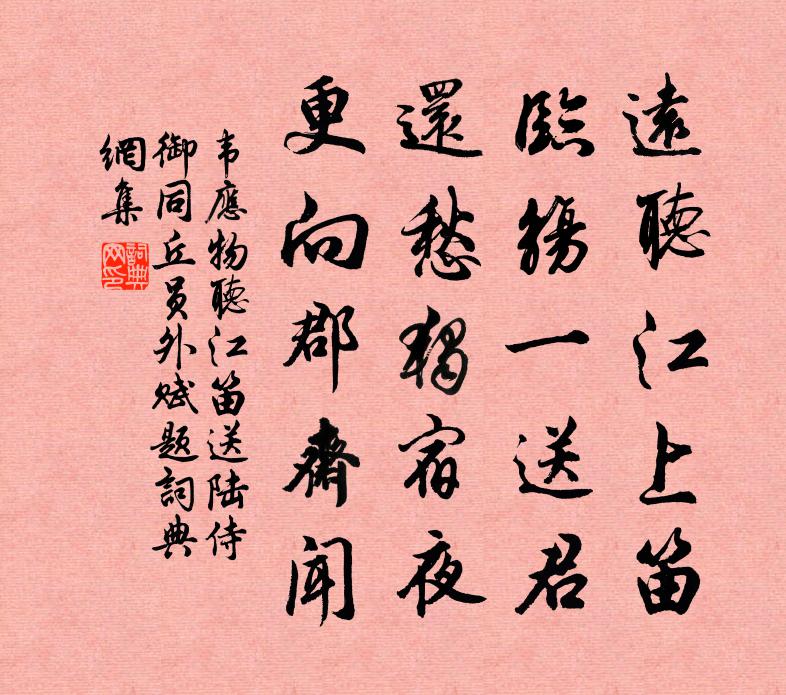 遠聽江上笛
臨觴一送君
還愁獨宿夜
更向郡齋聞
韦應物聽江笛送陆侍
御同丘员外赋题詞典
網集
詞典
网印